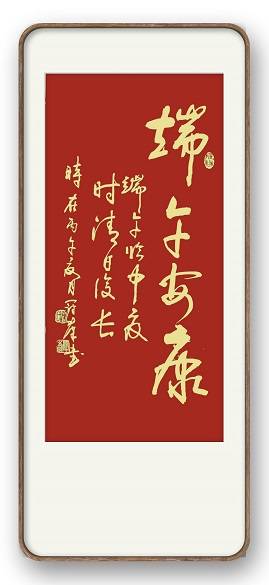 端午安康
端午临中夏
时清日复长
時在丙午夏月